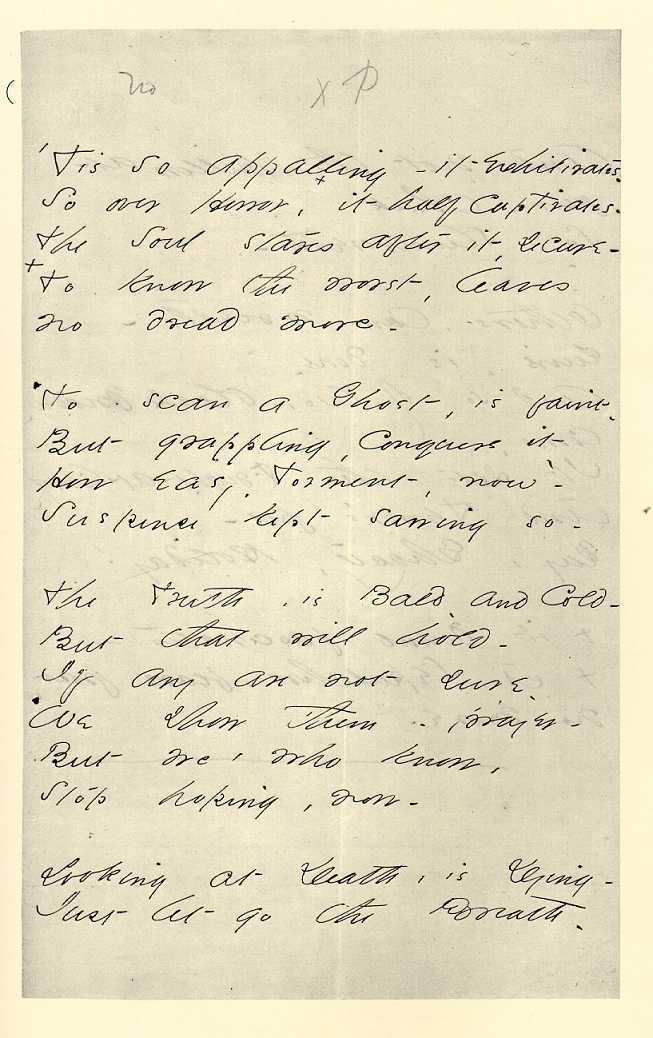 no x P
'Tis so appalling - it Exhilirates.
So over Horror, it half captivates.
The Soul stares after it, secure -
+ To know the worst, leaves
no dread more -
To scan a Ghost, is faint.
But grappling, conquers it -
How Easy, Torment, now -
Suspense kept sawing so -
The Truth, is Bald and Cold -
But that will hold -
If any are not sure.
We show them - prayer -
But we, who know,
Stop hoping, now -
Looking at Death, is Dying -
Just let go the Breath.